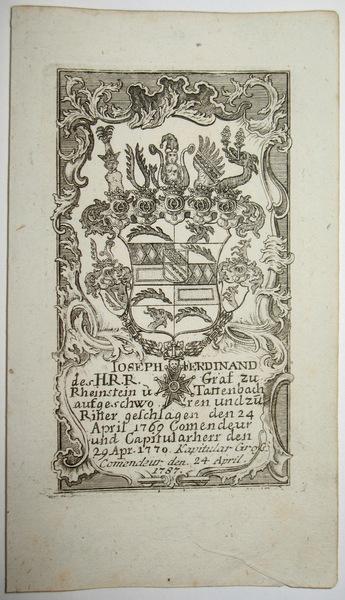 IOSEPH FERDINAND
des H.R.R. Graf zu
Rheinstein ù Tattenbach
aufgeschwo ren und zu
Ritter geschlagen den 24
April 1769 Comendeur
und Capitularherr den
29 Apr. 1770. Kapitular Groß:
Comendeur den 24 April
1787.